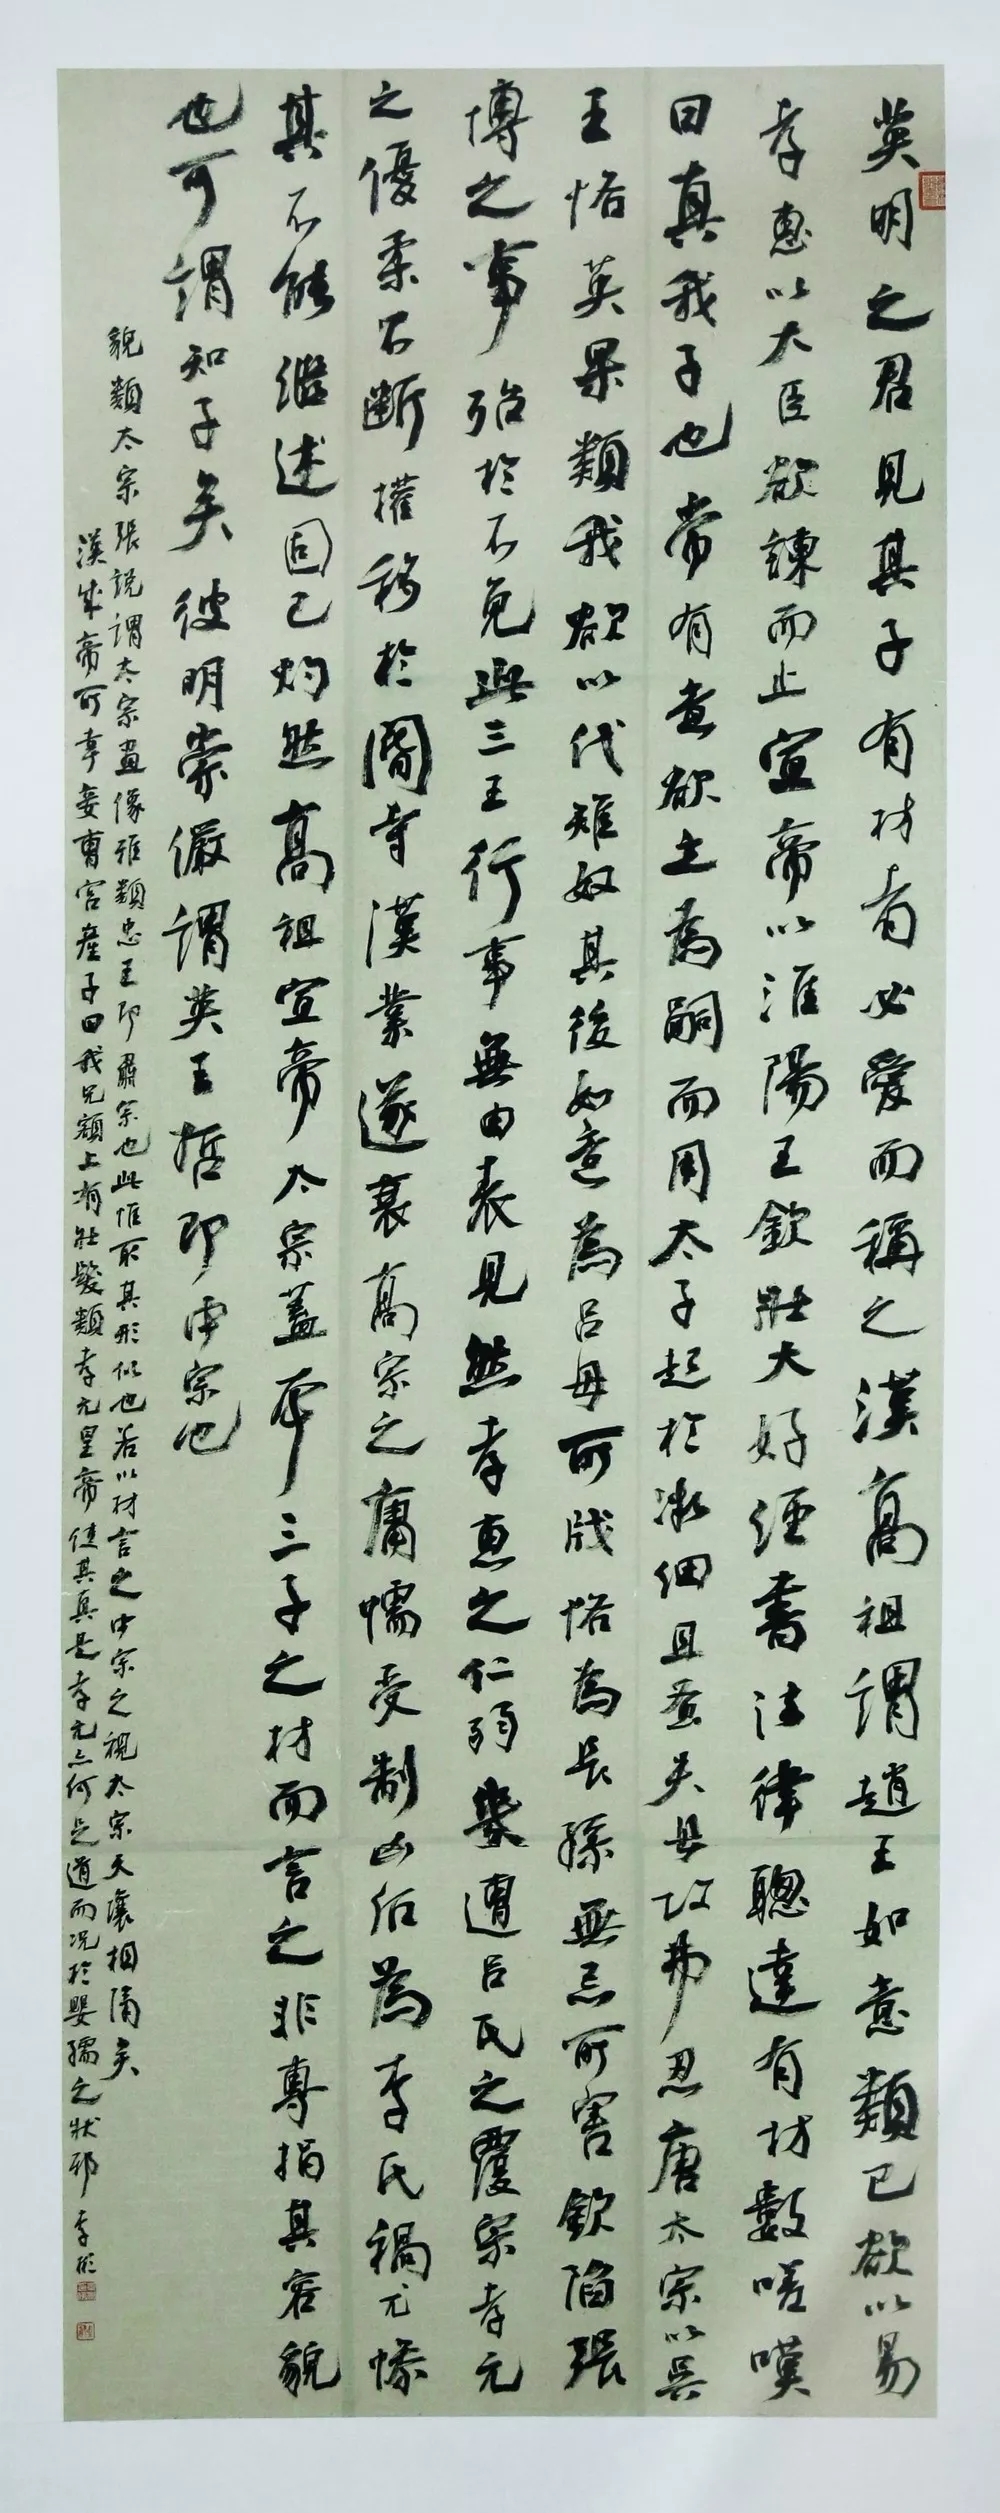 英明之君見其子有材者必愛而稱之漢高祖謂趙王如意類己欲以易
孝惠以大臣欲諫而止宣帝以淮陽王欽壯大好經書法律聰達有材數嗟嘆
曰真我子也常有意欲立為嗣而用太子起於微細且蚤失母故弗忍唐太宗以吳
王恪英果類我欲以代雉奴其後如意為呂母所戕恪為長孫無忌所害欽陷張
博之事殆於不免此三王行事無由表見然孝惠之仁弱幾遭呂氏之覆宗孝元
之優柔不斷權移於閹寺漢業遂衰高宗之庸懦受制凶后為李氏禍尤慘
其不能繼述固已灼然高祖宣帝太宗蓋本三子之材而言之非專指其容貌
也可謂知子矣彼明崇儼謂英王哲即中宗也
貌類太宗張說謂太宗畫像雅類忠王即肅宗也此惟取其形似也若以材言之中宗之視太宗天壤相隔矣
漢成帝所幸妾曹宮產子曰我兒額上有壯髮類孝元皇帝使其真是孝元亦何足道而況於嬰孺之狀邪 李彬